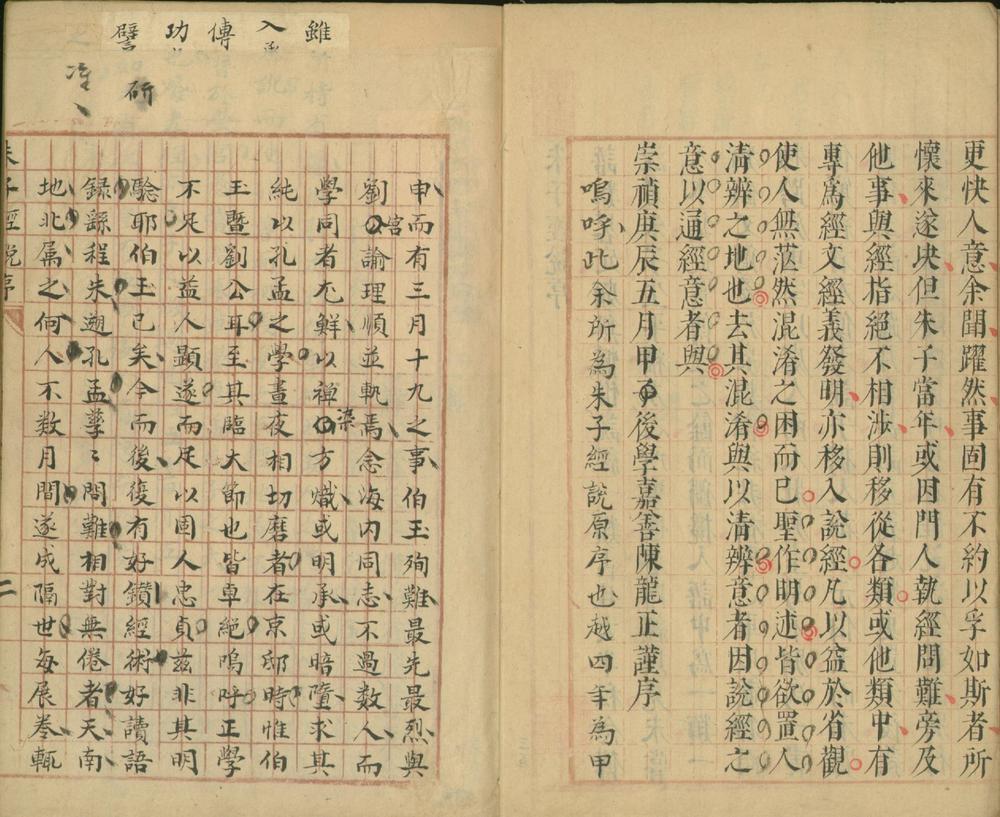 更快人意余聞躍然事固有不約以孚如斯者所
懷來遂决但朱子當年或因門人執經問難旁及
他事與經指絕不相涉則移從各類或他類中有
專爲經文經義發明亦移入說經凡以益於省觀
使人無茫然混淆之困而已聖作明述皆欲置人
清辨之地也去其混淆與以清辨意者因說經之
意以通經意者與
崇禎庚辰五月甲後學嘉善陳龍正謹序
嗚呼此余所為朱子經說原序也越四年為甲
雖
入
傳
功
譬研
准
申而有三月十九之事伯玉殉難最先最烈與
劉宮諭理順並軌焉念海内同志不過數人而
學同者尤鮮以禅染方熾或明承或暗墮求其
純以孔孟之學晝夜相切磨者在京邸時惟伯
玉暨劉公耳至其臨大節也皆卓絕嗚呼正學
不足以益人顯遂而足以固人忠貞茲非其明
驗耶伯玉已矣今而後復有好鑽經術好讀語
録繇程朱遡孔孟孳〻問難相對無倦者天南
地北属之何人不数月間遂成隔世每展卷輒
朱子經說序 二